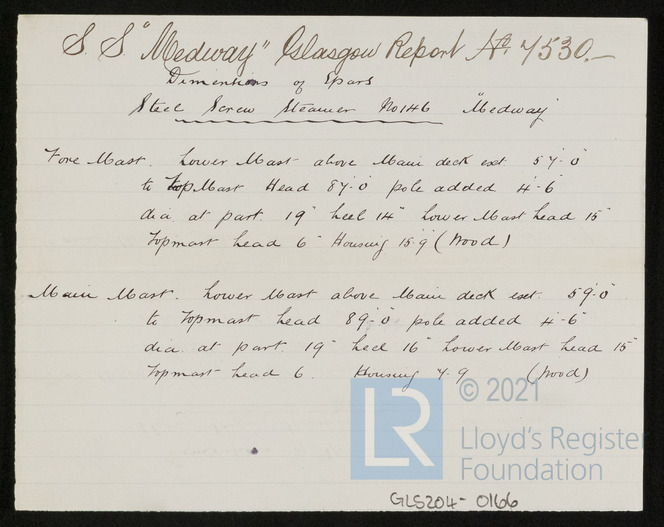 S. S "Medway" Glasgow Report No. 7530.—
Dimensions of Spars
Steel Screw Steamer No 146 "Medway"
Fore Mast. Lower Mast above Main deck ext. 57'-0"
to Top Mast Head 87'-0" pole added 4'-6"
dia at part 19" heel 14" Lower Mast head 15"
Topmast head 6" Housing 15'9" (Wood)
Main Mast. Lower Mast above Main deck ext. 59'-0"
to Topmast head 89'-0" pole added 4'-6"
dia. at part. 19" heel 16" Lower Mast head 15"
Topmast head 6. Housing 7.9 (Wood)
LR
© 2021
Lloyd's Register
Foundation
GLS204-0166